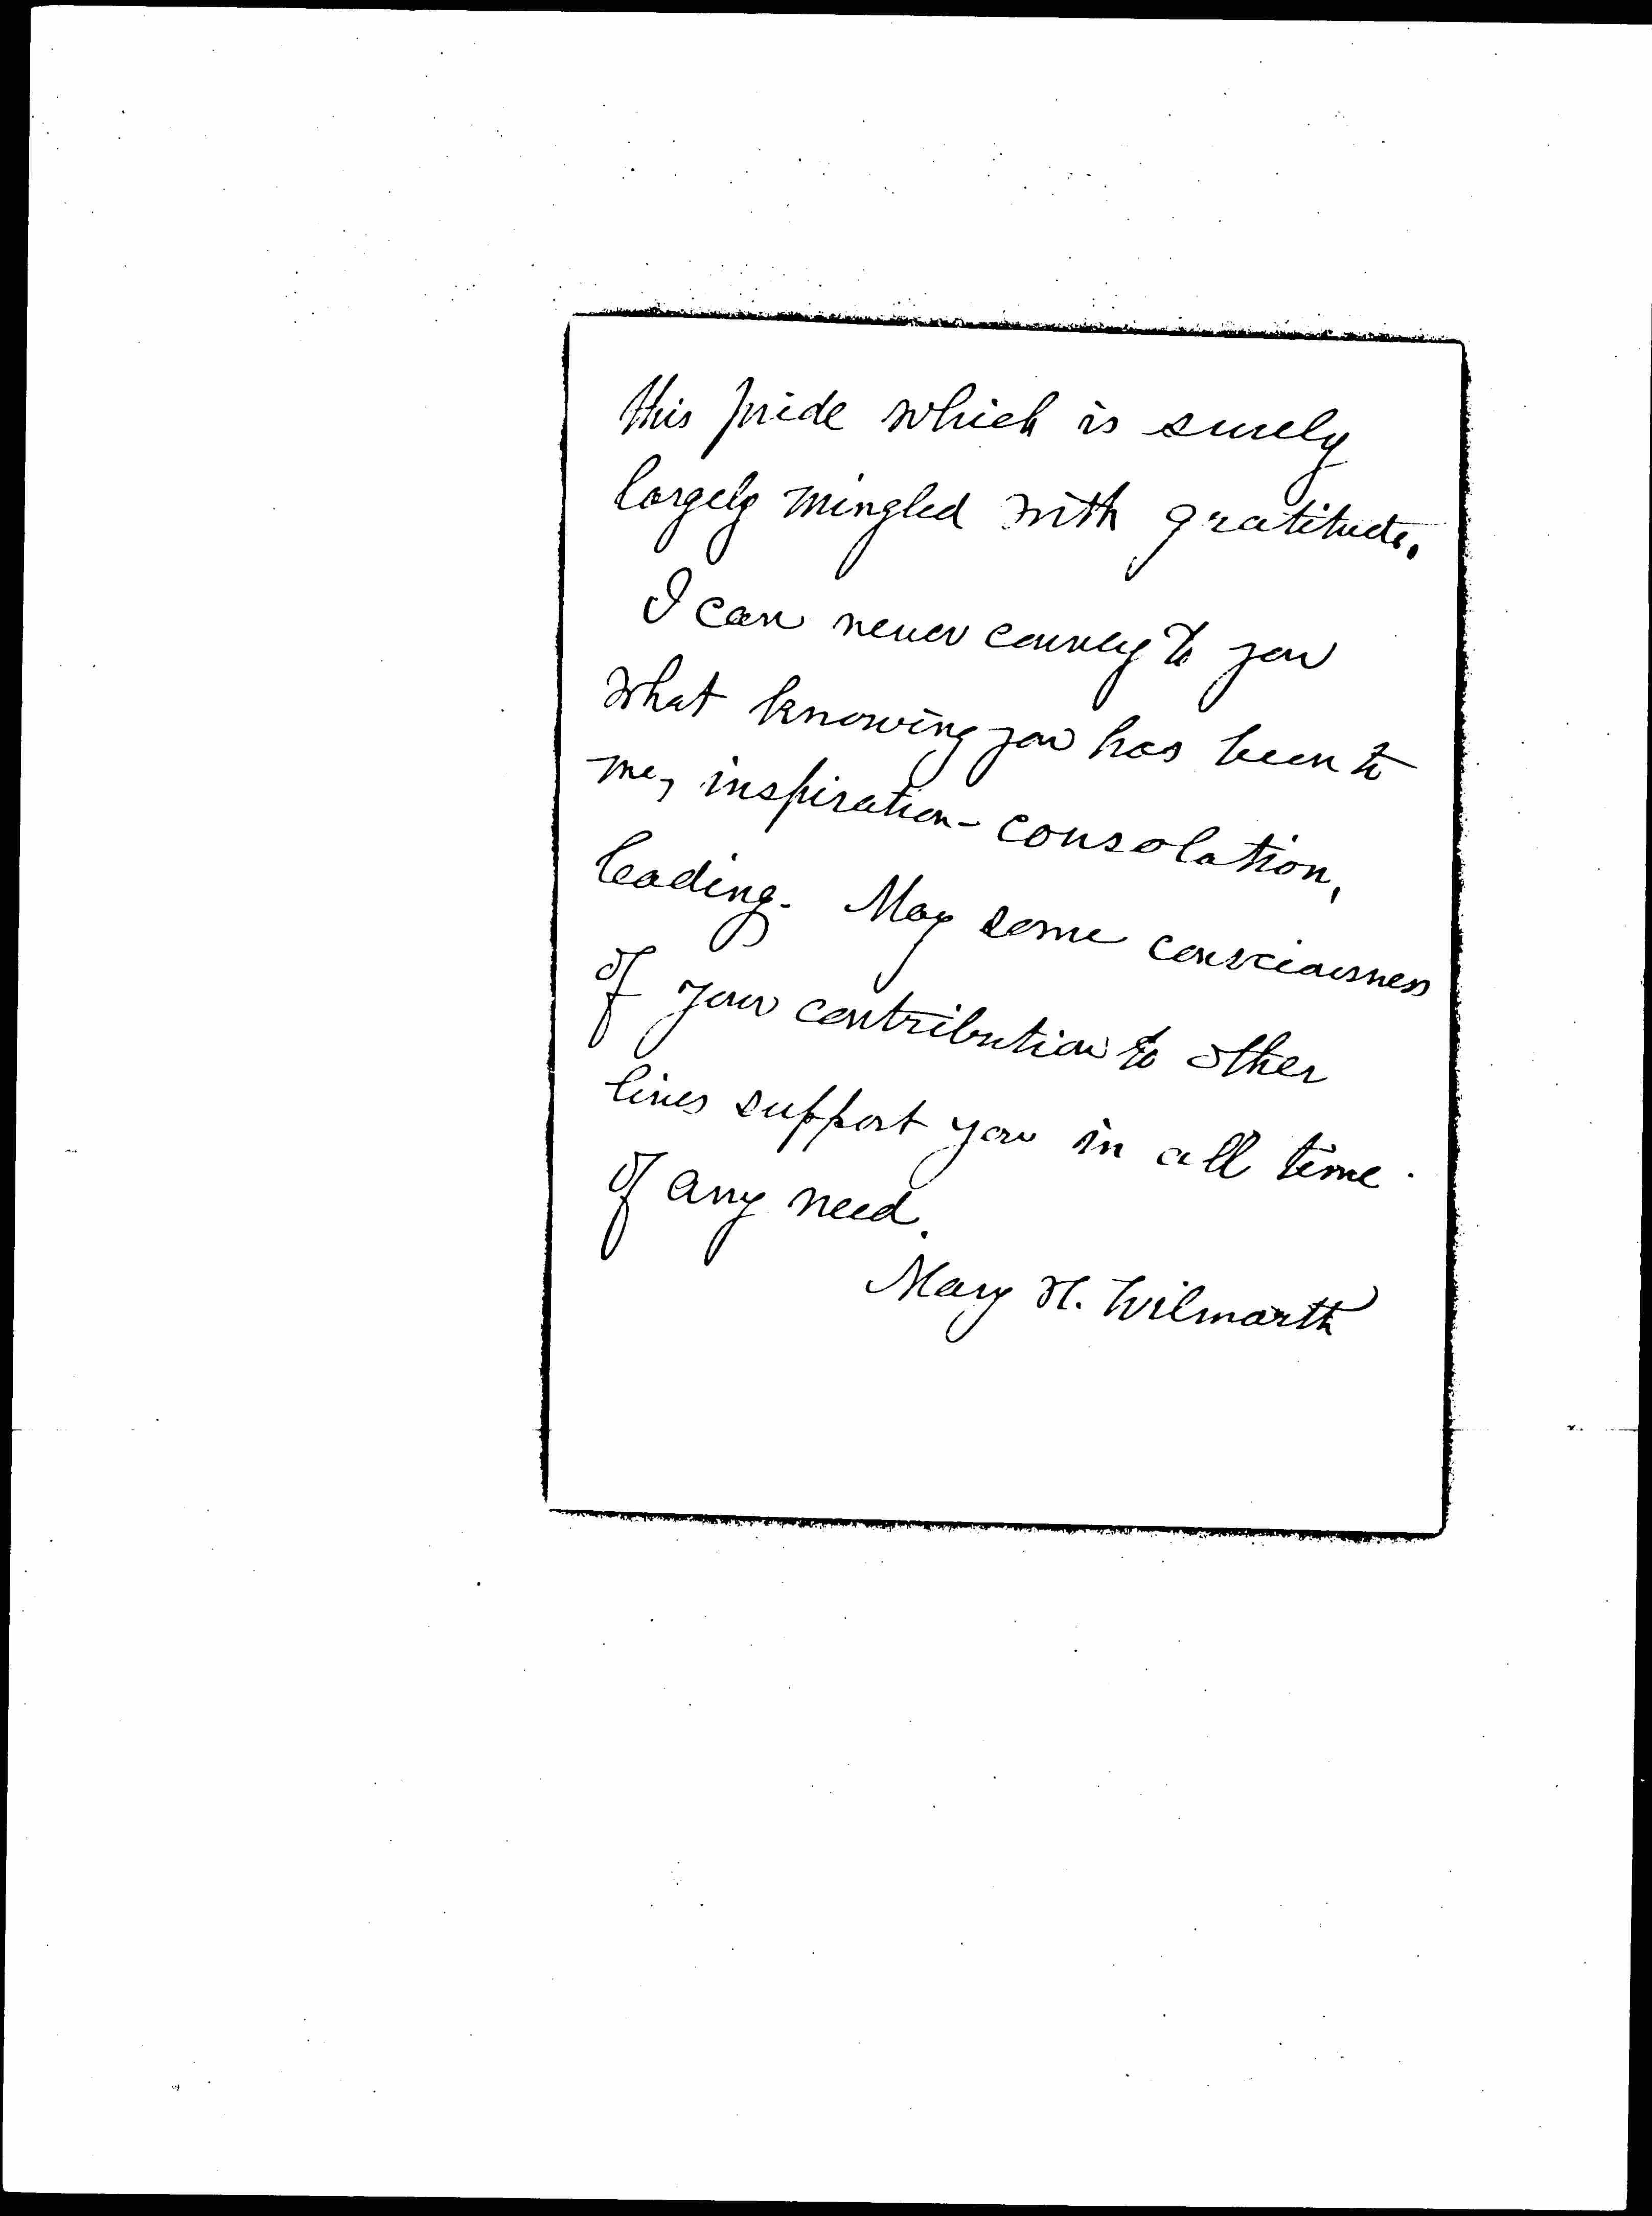 this pride which is surely
largely mingled with gratitude.
I can never convey to you
what knowing you has been to
me, inspiration - consolation,
leading. May some consciousness
of your contribution to other
lives support you in all time
of any need.
Mary H. Wilmarth